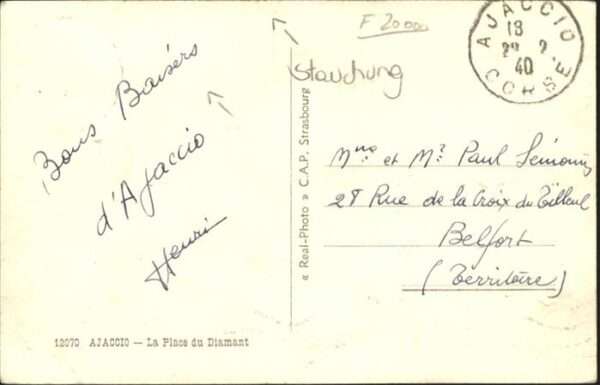 F 20000
AJACCIO
18
40
CORSE
Stauchung
Bons Baisers
d'Ajaccio
Henri
« Real-Photo » C.A.P. Strasbourg
Mme et Mr Paul
28 Rue de la Croix du Tilleul
Belfort
(Territoire)
12070 AJACCIO — La Place du Diamant